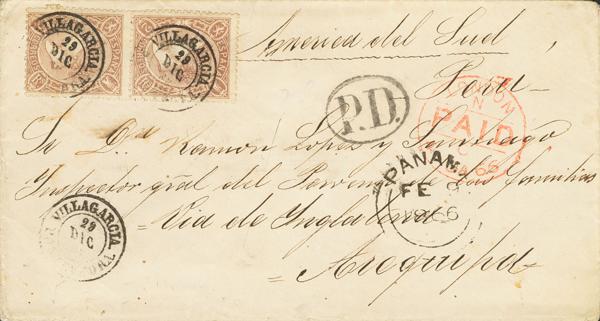 VILLAGARCIA
29
DIC
VILLAGARCIA
29
DIC
America del Sud
Peru
P.D.
LONDON
PAID
66
Sr Dn Ramon Lopez y Santiago
PANAMA
FE
1866
Inspector gral del
familias
Via de Inglaterra
VILLAGARCIA
29
DIC
Arequipa